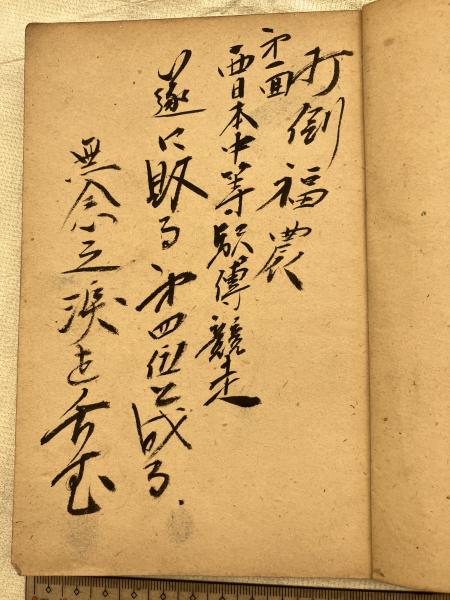 打倒福農
第一回
西日本中等駅傳競走
遂に敗る第四位と成る.
無念之涙を呑む